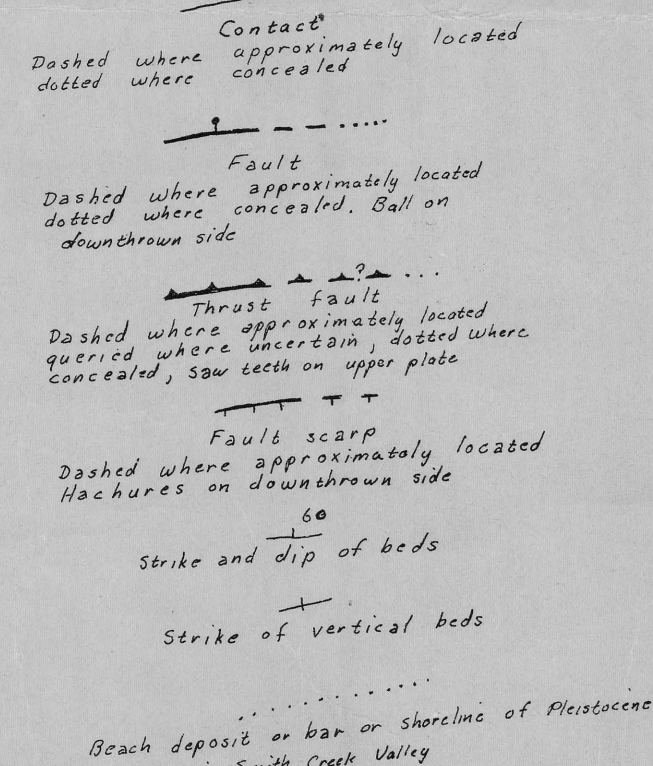 Contact
Dashed where approximately located
dotted where concealed
Fault
Dashed where approximately located
dotted where concealed. Ball on
downthrown side
?
Thrust fault
Dashed where approximately located
queried where uncertain, dotted where
concealed, saw teeth on upper plate
Fault scarp
Dashed where approximataly located
Hachures on downthrown side
60
Strike and dip of beds
Strike of vertical beds
Beach deposit or bar or shoreline of Pleistocene
Smith Creek Valley